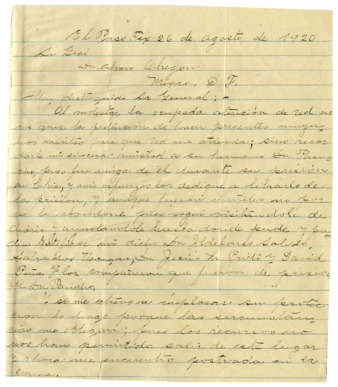 El Paso, Tex 26 de Agosto de 1920
Sr Gral
Dn Alvaro Obregon
Mexico. D F.
Muy distinguido Sr General; -
Al molestar la ocupada atención de Ud no
me guia la pretencion de hacer presentes ningu-
nos meritos para que Ud me atienda; sino recor
darle mi sincera amistad a su hermano Dn
pues fui amiga de el durante su prisión
en y mis esfuerzos los dedique a librarlo de
la prision, y aunque fueron inutiles no por
eso lo abandoné pues segui visitandole de
diario y ayudandole hasta donde pude y pu-
den Dn Ildefonso Salido,
Salvador Jesús M. Prieto y David
Peña Flor compañeros que fueron de prision
de Dn
Y si me atrevo a implorar su protec
cion lo hago porque las circunstan-
cias me obligan; pues los recursos no
nos han permitido salir de este lugar
y ahora me encuentro postrada en la
cama.